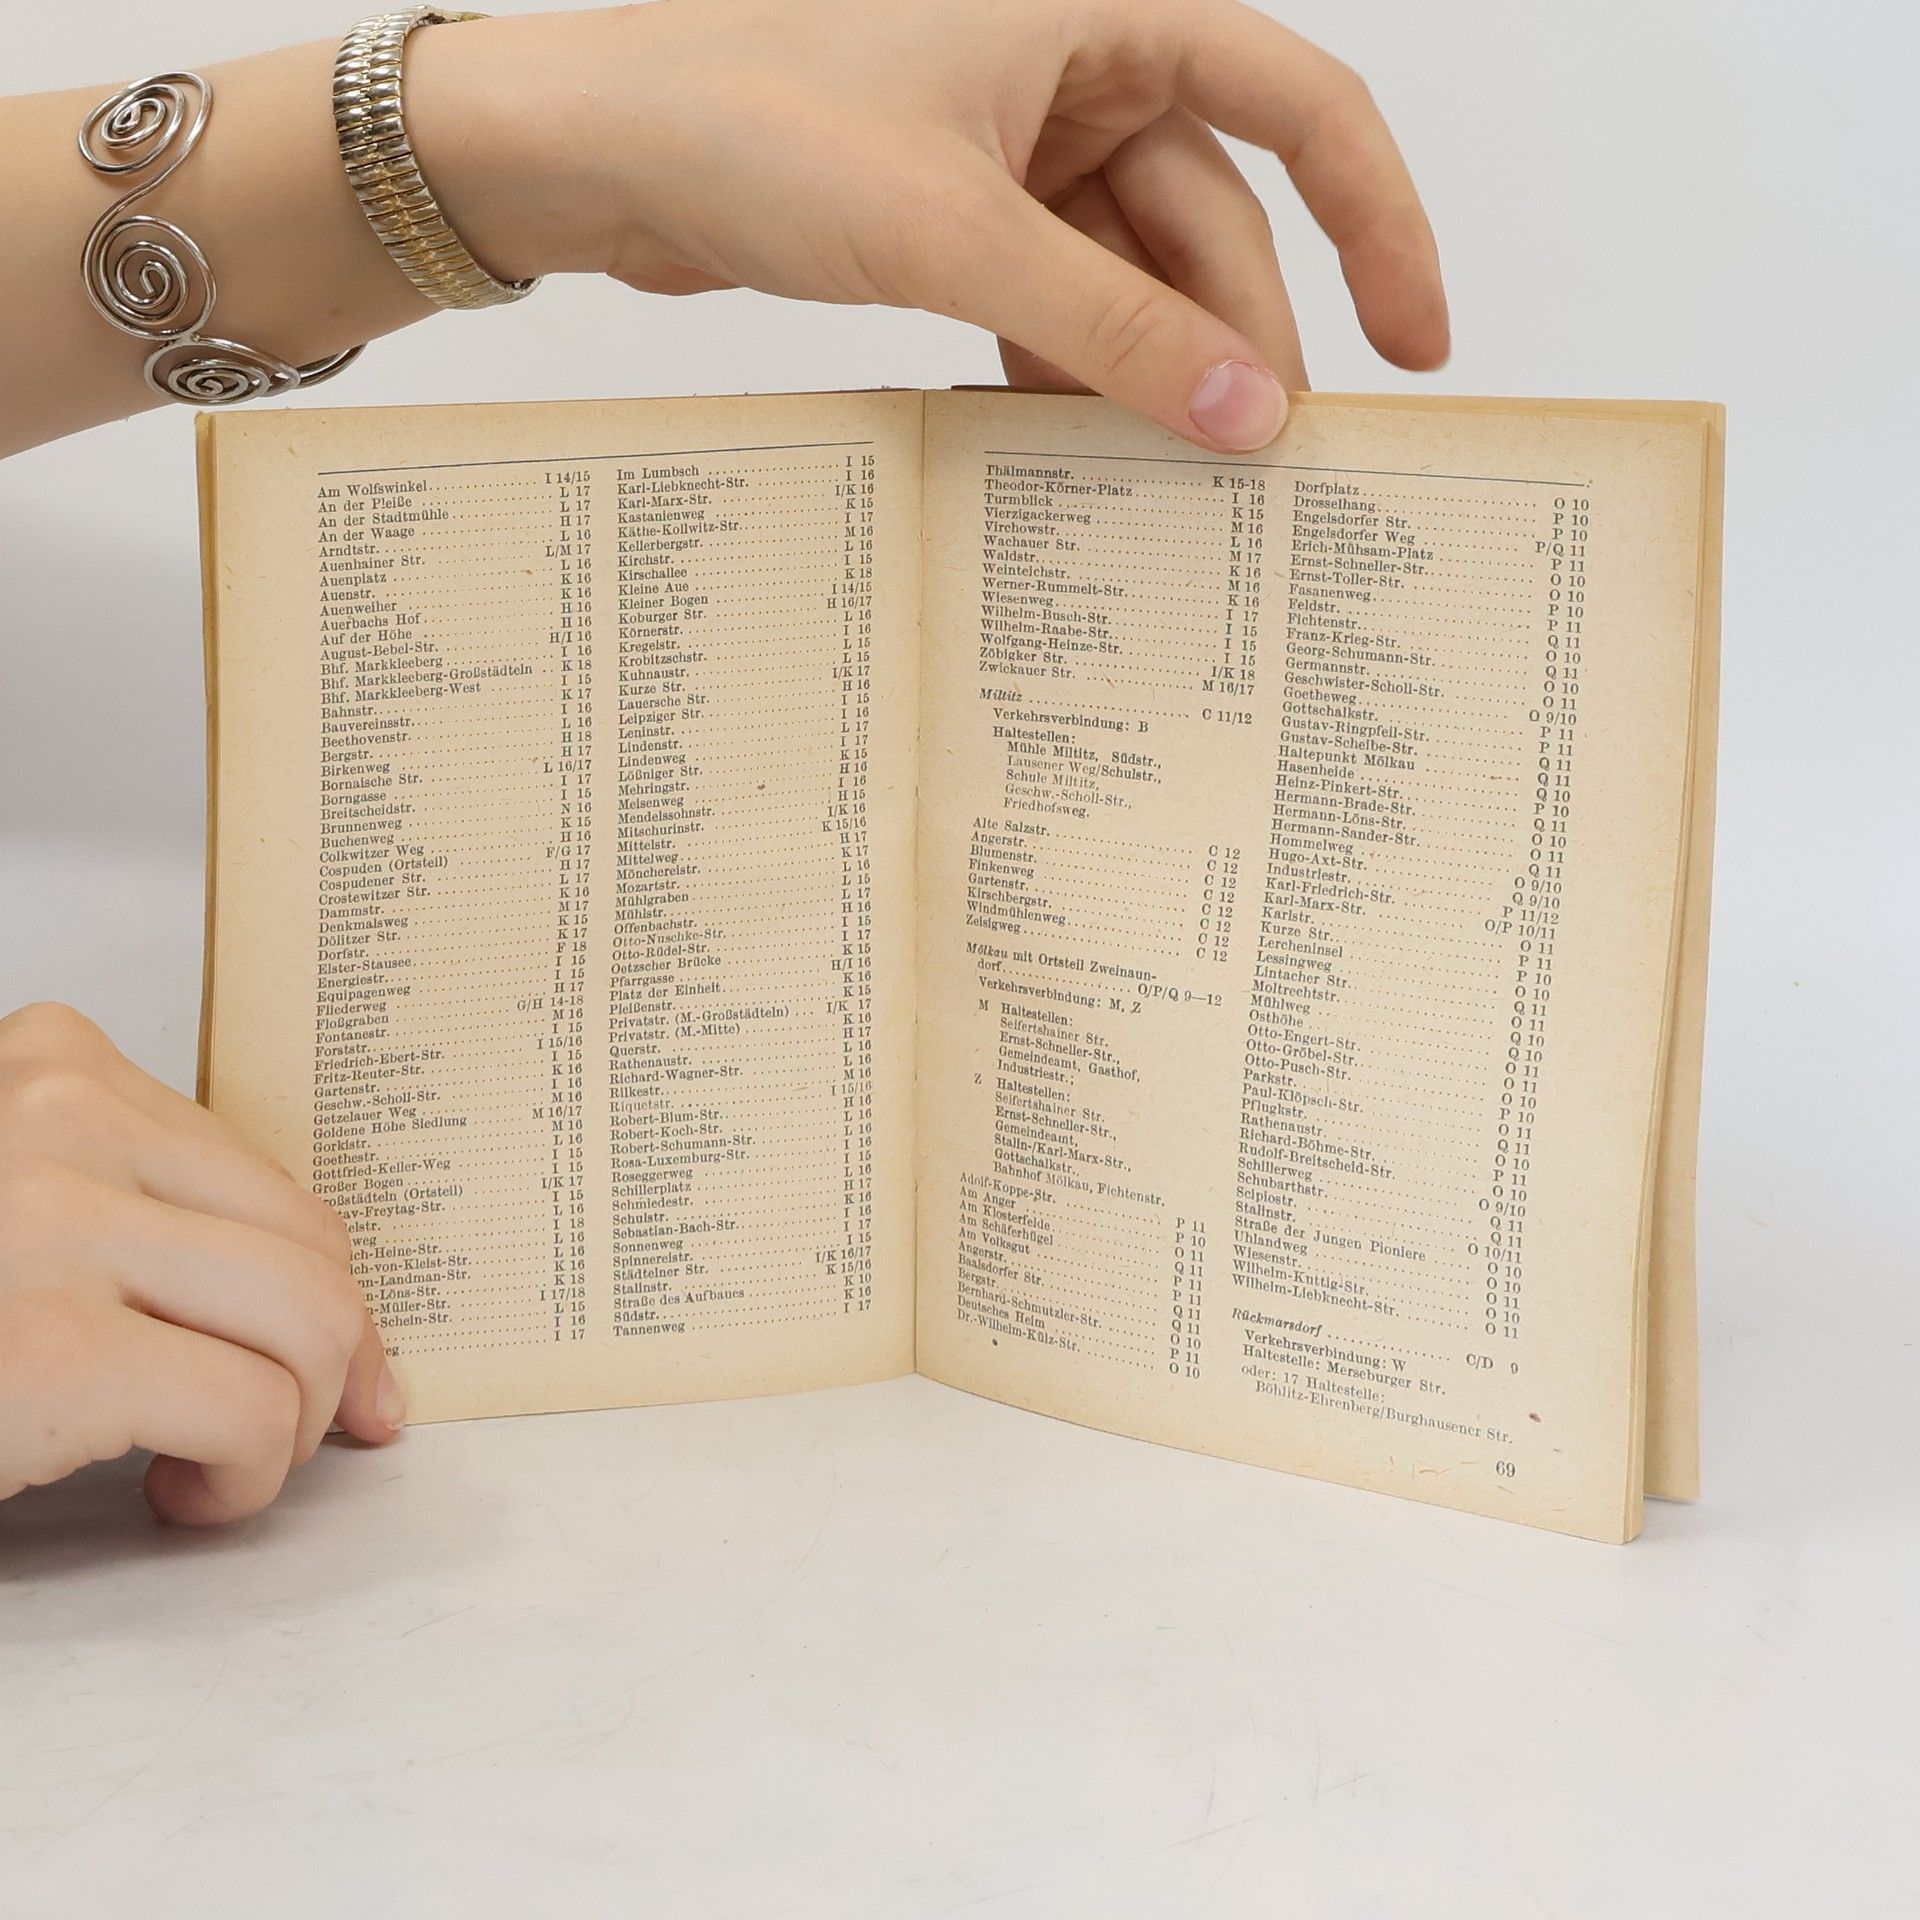 Am Wolfswinkel .......... I 14/15
An der Pleiße .......... L 17
An der Stadtmühle .......... L 17
An der Waage .......... H 17
Arndtstr. .......... L 16
Auenhainer Str. .......... L/M 17
Auenplatz .......... L 16
Auenstr. .......... K 16
Auenweiher .......... K 16
Auerbachs Hof .......... H 16
Auf der Höhe .......... H 16
August-Bebel-Str. .......... H/I 16
Bhf. Markkleeberg .......... I 16
Bhf. Markkleeberg-Großstädteln .. K 18
Bhf. Markkleeberg-West .......... I 15
Bahnstr. .......... K 17
Bauvereinsstr. .......... I 16
Beethovenstr. .......... L 16
Bergstr. .......... H 18
Birkenweg .......... H 17
Bornaische Str. .......... L 16/17
Borngasse .......... I 17
Breitscheidstr. .......... I 15
Brunnenweg .......... N 16
Buchenweg .......... K 15
Colkwitzer Weg .......... H 16
Cospuden (Ortsteil) .......... F/G 17
Cospudener Str. .......... H 17
Crostewitzer Str. .......... L 17
Dammstr. .......... K 16
Denkmalsweg .......... M 17
Dölitzer Str. .......... K 15
Dorfstr. .......... K 17
Elster-Stausee .......... F 18
Energiestr. .......... I 15
Equipagenweg .......... I 15
Fliederweg .......... H 17
Floßgraben .......... G/H 14-18
Fontanestr. .......... M 16
Forststr. .......... I 15
Friedrich-Ebert-Str. .......... I 15/16
Fritz-Reuter-Str. .......... I 15
Gartenstr. .......... K 16
Geschw.-Scholl-Str. .......... I 16
Getzelauer Weg .......... M 16
Goldene Höhe Siedlung .......... M 16/17
Gorkistr. .......... M 16
Goethestr. .......... L 16
Gottfried-Keller-Weg .......... I 15
Großer Bogen .......... I 15
roßstädteln (Ortsteil) .......... I/K 17
tav-Freytag-Str. .......... I 15
elstr. .......... L 16
weg .......... I 18
ich-Heine-Str. .......... L 16
ich-von-Kleist-Str. .......... L 16
nn-Landman-Str. .......... K 16
n-Löns-Str. .......... K 18
n-Müller-Str. .......... I 17/18
-Schein-Str. .......... L 15
.......... I 16
eg. .......... I 17
Im Lumbsch .......... I 15
Karl-Liebknecht-Str. .......... I 16
Karl-Marx-Str. .......... I/K 16
Kastanienweg .......... K 15
Käthe-Kollwitz-Str. .......... I 17
Kellerbergstr. .......... M 16
Kirchstr. .......... L 16
Kirschallee .......... I 15
Kleine Aue .......... K 18
Kleiner Bogen .......... I 14/15
Koburger Str. .......... H 16/17
Körnerstr. .......... L 16
Kregelstr. .......... I 16
Krobitzschstr. .......... L 15
Kuhnaustr. .......... L 15
Kurze Str. .......... I/K 17
Lauersche Str. .......... H 16
Leipziger Str. .......... I 15
Leninstr. .......... I 16
Lindenstr. .......... L 17
Lindenweg .......... I 17
Lößniger Str. .......... K 15
Mehringstr. .......... H 16
Meisenweg .......... I 16
Mendelssohnstr. .......... H 15
Mitschurinstr. .......... I/K 16
Mittelstr. .......... K 15/16
Mittelweg .......... H 17
Mönchereistr. .......... K 17
Mozartstr. .......... L 16
Mühlgraben .......... L 15
Mühlstr. .......... L 17
Offenbachstr. .......... H 16
Otto-Nuschke-Str. .......... I 15
Otto-Rüdel-Str. .......... I 17
Oetzscher Brücke .......... K 15
Pfarrgasse .......... H/I 16
Platz der Einheit .......... K 16
Pleißenstr. .......... K 15
Privatstr. (M.-Großstädteln) ... I/K 17
Privatstr. (M.-Mitte) .......... K 16
Querstr. .......... H 17
Rathenaustr. .......... L 16
Richard-Wagner-Str. .......... L 16
Rilkestr. .......... M 16
Riquetstr. .......... I 15/16
Robert-Blum-Str. .......... H 16
Robert-Koch-Str. .......... L 16
Robert-Schumann-Str. .......... L 16
Rosa-Luxemburg-Str. .......... I 16
Roseggerweg .......... I 15
Schillerplatz .......... L 16
Schmiedestr. .......... H 17
Schulstr. .......... K 16
Sebastian-Bach-Str. .......... I 16
Sonnenweg .......... I 17
Spinnereistr. .......... I 15
Städtelner Str. .......... I/K 16/17
Stalinstr. .......... K 15/16
Straße des Aufbaues .......... K 10
Südstr. .......... K 16
Tannenweg .......... I 17
Thälmannstr. .......... K 15-18
Theodor-Körner-Platz .......... I 16
Turmblick .......... K 15
Vierzigackerweg .......... M 16
Virchowstr. .......... L 16
Wachauer Str. .......... M 17
Waldstr. .......... K 16
Weinteichstr. .......... M 16
Werner-Rummelt-Str. .......... K 16
Wiesenweg .......... I 17
Wilhelm-Busch-Str. .......... I 15
Wilhelm-Raabe-Str. .......... I 15
Wolfgang-Heinze-Str. .......... I 15
Zöbigker Str. .......... I/K 18
Zwickauer Str. .......... M 16/17
Miltitz .......... C 11/12
Verkehrsverbindung: B
Haltestellen:
Mühle Miltitz, Südstr.,
Lausener Weg/Schulstr.,
Schule Miltitz,
Geschw.-Scholl-Str.,
Friedhofsweg.
Alte Salzstr. .......... C 12
Angerstr. .......... C 12
Blumenstr. .......... C 12
Finkenweg .......... C 12
Gartenstr. .......... C 12
Kirschbergstr. .......... C 12
Windmühlenweg .......... C 12
Zeisigweg .......... C 12
Mölkau mit Ortsteil Zweinaun-
dorf .......... O/P/Q 9—12
Verkehrsverbindung: M, Z
M Haltestellen:
Seifertshainer Str.
Ernst-Schneller-Str.,
Gemeindeamt, Gasthof,
Industriestr.;
Z Haltestellen:
Seifertshainer Str.
Ernst-Schneller-Str.,
Gemeindeamt,
Stalin-/Karl-Marx-Str.,
Gottschalkstr.,
Bahnhof Mölkau, Fichtenstr.
Adolf-Koppe-Str. .......... P 11
Am Anger .......... P 10
Am Klosterfelde .......... O 11
Am Schäferhügel .......... Q 11
Am Volksgut .......... P 11
Angerstr. .......... P 11
Baalsdorfer Str. .......... Q 11
Bergstr. .......... Q 11
Bernhard-Schmutzler-Str. .......... O 10
Deutsches Heim .......... P 11
Dr.-Wilhelm-Külz-Str. .......... O 10
Dorfplatz .......... O 10
Drosselhang .......... P 10
Engelsdorfer Str. .......... P 10
Engelsdorfer Weg .......... P/Q 11
Erich-Mühsam-Platz .......... P 11
Ernst-Schneller-Str. .......... O 10
Ernst-Toller-Str. .......... O 10
Fasanenweg .......... P 10
Feldstr. .......... P 11
Fichtenstr. .......... Q 11
Franz-Krieg-Str. .......... O 10
Georg-Schumann-Str. .......... Q 11
Germannstr. .......... O 10
Geschwister-Scholl-Str. .......... O 11
Goetheweg .......... O 9/10
Gottschalkstr. .......... P 11
Gustav-Ringpfeil-Str. .......... P 11
Gustav-Scheibe-Str. .......... Q 11
Haltepunkt Mölkau .......... Q 11
Hasenheide .......... Q 10
Heinz-Pinkert-Str. .......... P 10
Hermann-Brade-Str. .......... Q 11
Hermann-Löns-Str. .......... O 10
Hermann-Sander-Str. .......... O 11
Hommelweg .......... Q 11
Hugo-Axt-Str. .......... O 9/10
Industriestr. .......... Q 9/10
Karl-Friedrich-Str. .......... P 11/12
Karl-Marx-Str. .......... O/P 10/11
Karlstr. .......... O 11
Kurze Str. .......... P 11
Lercheninsel .......... P 10
Lessingweg .......... O 10
Lintacher Str. .......... Q 11
Moltrechtstr. .......... O 11
Mühlweg .......... Q 10
Osthöhe .......... Q 10
Otto-Engert-Str. .......... O 11
Otto-Gröbel-Str. .......... O 11
Otto-Pusch-Str. .......... O 10
Parkstr. .......... P 10
Paul-Klöpsch-Str. .......... O 11
Pflugkstr. .......... Q 11
Rathenaustr. .......... O 10
Richard-Böhme-Str. .......... P 11
Rudolf-Breitscheid-Str. .......... O 10
Schillerweg .......... O 9/10
Schubarthstr. .......... Q 11
Scipiostr. .......... Q 11
Stalinstr. .......... O 10/11
Straße der Jungen Pioniere .......... O 10
Uhlandweg .......... O 10
Wiesenstr. .......... O 11
Wilhelm-Kuttig-Str. .......... O 10
Wilhelm-Liebknecht-Str. .......... O 11
Rückmarsdorf .......... C/D 9
Verkehrsverbindung: W
Haltestelle: Merseburger Str.
oder: 17 Haltestelle:
Böhlitz-Ehrenberg/Burghausener Str.
69